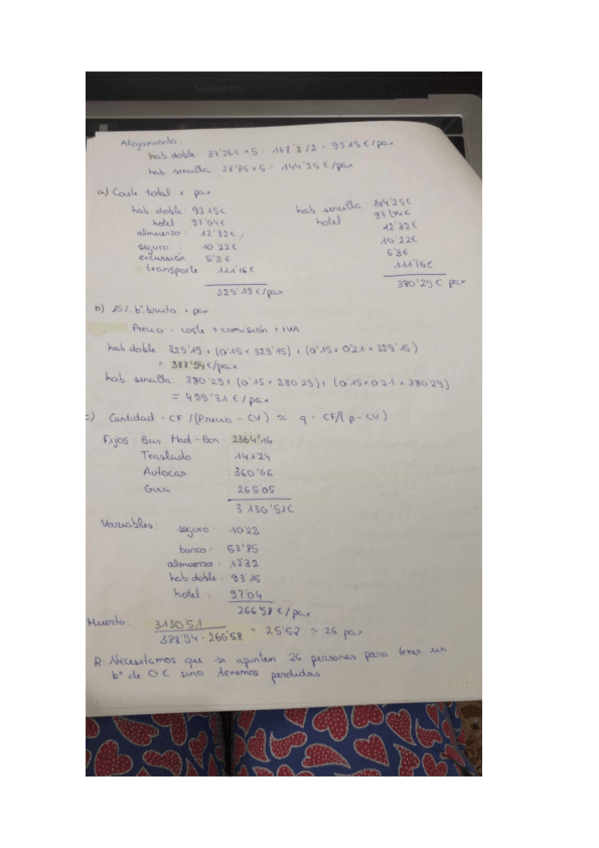 Alojamiento:
hab doble: 37'26€ x 5 = 168'3 /2 = 93'15€/pax
hab sencilla: 28'85 x 5 = 144'25€/pax
a) Coste total x pax
hab doble: 93'15€
hotel: 97'04€
almuerzo: 12'32€
seguro: 10'22€
excursión: 5'3€
transporte 111'16€
329'19€/pax
hab sencilla: 144'25€
hotel 97'04€
12'32€
10'22€
5'3€
111'16€
380'29€ pax
b) 15% bº bruto x pax
Precio = coste + comisión + IVA
hab doble: 329'19 + (0'15 x 329'15) + (0'15 x 0'21 x 329'15)
= 388'94€/pax
hab sencilla: 380'29 + (0'15 x 380'29) + (0'15 x 0'21 x 380'29)
= 499'31€/pax
c) Cantidad = CF /(Precio - CV) ≃ q = CF/(p - CV)
Fijos: Bus Mad - Bcn: 2364'16
Traslado : 141'24
Autocar : 360'06
Guia 265'05
3130'51€
Variables: seguro: 10'22
barco: 53'85
almuerzo: 12'32
hab doble: 93'15
hotel: 97'04
266'58€/pax
Muerto: 3130'51 / 388'94 - 266'58 = 25'58 ≃ 26 pax
R: Necesitamos que se apunten 26 personas para tener un
bº de 0€ sino tenemos perdidas